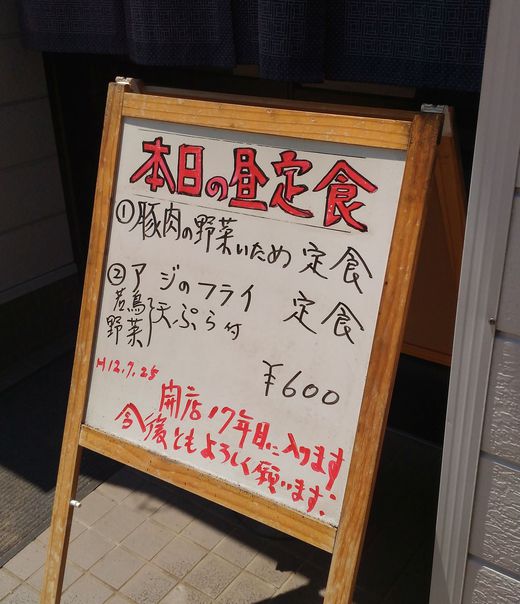 本日の昼定食
①豚肉の野菜いため 定食
②アジのフライ 定食
若鳥 野菜 天ぷら付
¥600
H12.7.25
開店17年目に入ります
今後ともよろしく願います。